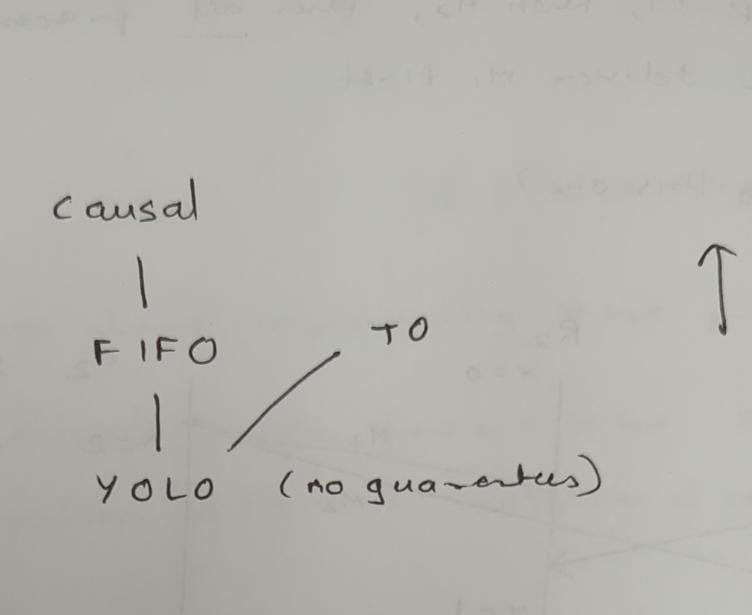 causal
FIFO
TO
YOLO (no guarantees)